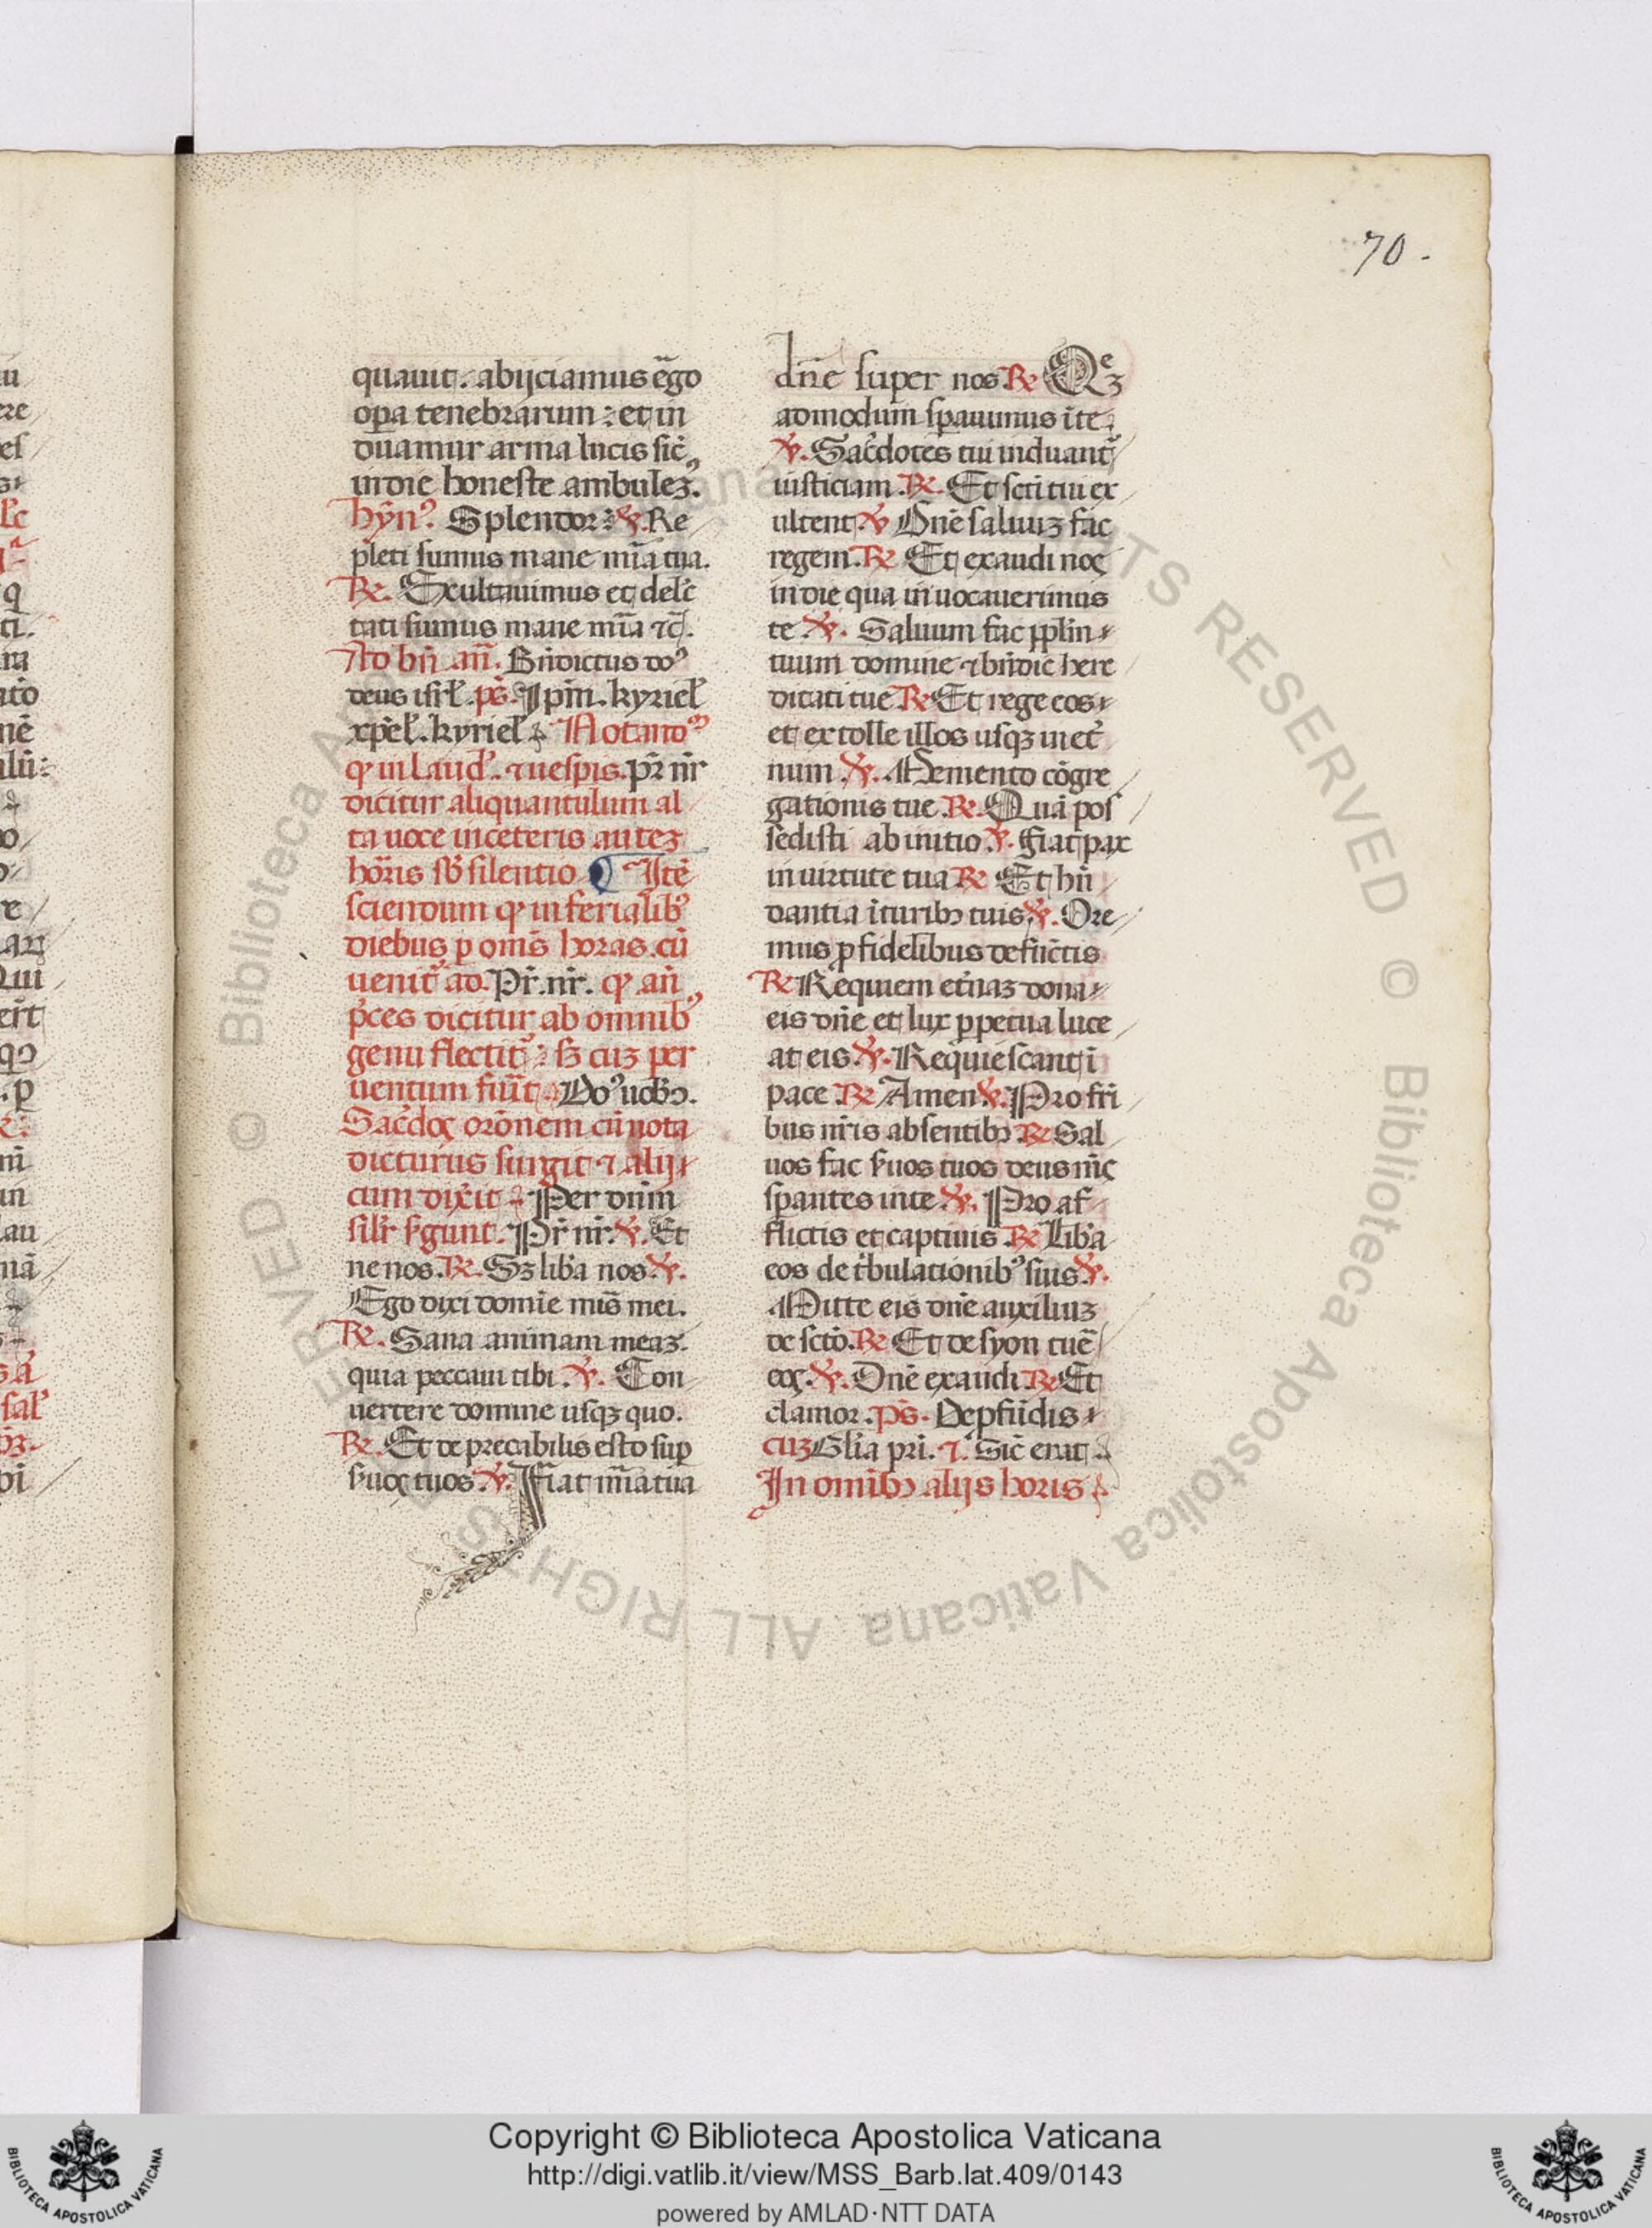 70.
quauit. abijciamus ẽgo
oꝑa tenebrarum: et in
duamur arma lucis sic̃
in die honeste ambulez.
hỹn⁹. Splendor: ℣. Re
pleti sumus mane mĩa tua.
℞. Exultauimus et delc̃
tati sumus mane mĩa ⁊c̃.
Ad bñ añ. Bñdictus do⁹
deus isrł. p̃s. Ip̃m. kyrieł
xp̃eł. kyrieł Notand⁹
ꝙ in laud̛. ⁊ uespis. pr̃ nr̃
dicitur aliquantulum al
ta uoce in ceteris autez
hõris sb̛ silentio ¶ Itẽ
sciendum ꝙ in ferialib⁹
diebus ꝑ om̃s horas. cũ
uenit̛ ad. Pr̃. nr̃. ꝙ añ
p̛ces dicitur ab omnib⁹
genu flectit̛: sꝫ cuz per
uentum fiũt Do⁹ uobꝭ.
Sac̛doꝭ orõnem cũ nota
dicturus surgit ⁊ alij
cum dix̛it Per dñm
silr̃ s̛gunt. Pr̃ nr̃. ℣. Et
ne nos. ℞. Sꝫ lib̛a nos. ℣.
Ego dixi domĩe mis̃ mei.
℞. Sana animam meaz.
quia peccaui tibi. ℣. Con
uertere domine usqꝫ quo.
℞. Et de precabilis esto suꝑ
s̛uoꝭ tuos. ℣. Fiat mĩa tua
dñe super nos ℞ Qeꝫ
admodum sꝑauimus ĩ te
℣. Sac̛dotes tui induant̛
iusticiam. ℞. Et sc̃ti tui ex
ultent ℣ Dñe saluuz fac
regem. ℞ Et exaudi noꝭ
in die qua inuocauerimus
te ℣. Saluum fac pp̃lm
tuum domine ⁊ bñdic here
ditati tue ℞ Et rege eos
et extolle illos usqꝫ in et̛
num ℣. Memento cõgre
gationis tue. ℞. Quã pos
sedisti ab initio ℣. Fiat pax
in uirtute tua ℞ Et hñ
dantia ĩ turibꝰ tuis ℣. Ore
mus ꝓ fidelibus defũctis
℞ Requiem et̛naz dona
eis dñe et lux ꝑpetua luce
at eis. ℣. Requiescant ĩ
pace ℞ Amen ℣. Pro fr̃i
bus nr̃is absentibꝰ ℞ Sal
uos fac s̛uos tuos deus m̃ꝭ
sꝑantes in te ℣. Pro af
flictis et captiuis ℞ Lib̛a
eos de t̛bulationib⁹ suis ℣.
Mitte eis dñe auxiliuz
de sc̃to. ℞ Et de syon tuẽ
eoꝭ. ℣. Dñe exaudi ℞ Et
clamor. p̃s. Depfũdis
cuz Gl̃ia pri. ⁊. Sic̃ erat
In omĩbꝰ alijs horis
Copyright © Biblioteca Apostolica Vaticana
http://digi.vatlib.it/view/MSS_Barb.lat.409/0143
powered by AMLAD·NTT DATA